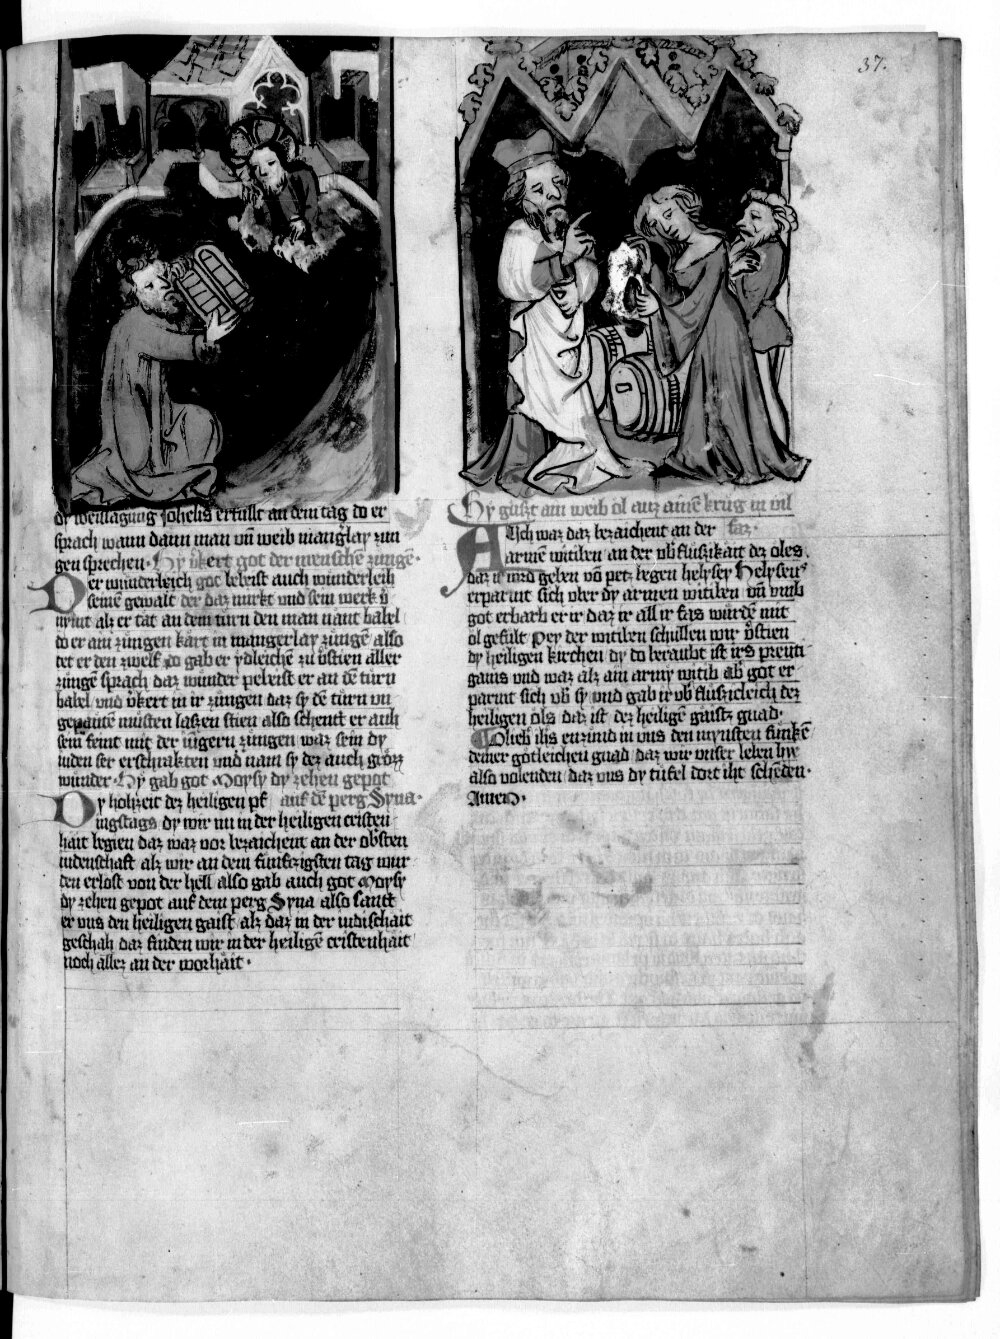 37.
dy weissagung Johelis erfullt an dem tag do er
sprach wann dann man vñ weib mangˀlay zun
gen sprechen · Hy v̓kert got der menschē zungē ·
Der wunderleich got beleist auch wunderleih
semē gewalt der daz wirkt vnd sein werk
nymt alz er tat an dem turn den man nant babel
do er ain zungen kart in mangerlay zungē also
tet er den zwelf do gab er ydleichē zu v̓stien aller
zungē sprach daz wunder peleist er an dē turn
babel vnd v̓kert in ir zungen daz sy dē turn vn
gepautē musten lassen stien also schent er auh
sein feint mit der iūgern zungen waz sein dy
iuden ser erschrakten vnd nam sy dez auch grozz
wunder · Hy gab got Moysy dy zehen gepot
Dy hohzeit dez heiligen pf auf dē perg Syna ·
ingstags dy wir nu in der heiligen cristen
hait begien daz waz vor bezaichent an der obˀsten
iudenschaft alz wir an dem funfczigsten tag wur
den erlost von der hell also gab auch got Moysy
dy zehen gepot auf dem perg Syna also santt
er vns den heiligen gaist alz daz in der iudischait
geschah daz finden wir in der heiligē cristenhait
noch allez an der worhait ·
Hy guszt ain weib öl auz ainē krug in vil
Auch waz daz bezaichent an der faz ·
armē witiben an der vbˀfluszikait dez oles
daz ir ward geben vō petz wegen helysey Helyseuˀ
erparmt sich vber dy armen witiben vñ vmb
got erbarb er ir daz ir all ir fas wurdē mit
öl gefult Pey der witiben schullen wir v̓stien
dy heiligen kirchen dy do beraubt ist irs preuti
gams vnd waz alz ain army witib abˀ got er
parmt sich vbˀ sy vnd gab ir vbˀfluszicleich dez
heiligen öls daz ist dez heiligē gaistz gnad ·
O lieb ihs enzund in vns den mynsten funkē
deiner gotleichen gnad daz wir vnser leben hye
also volenden daz vns dy tüfel dort iht schēden ·
Amen ·